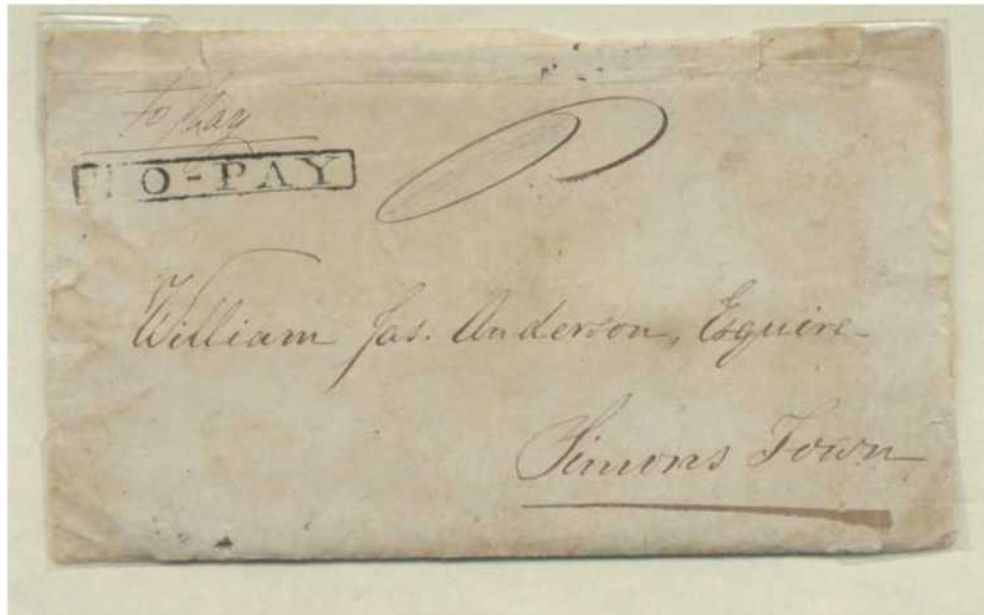 to Pay
TO-PAY
William Jas. Anderson, Esquire
Simons Town